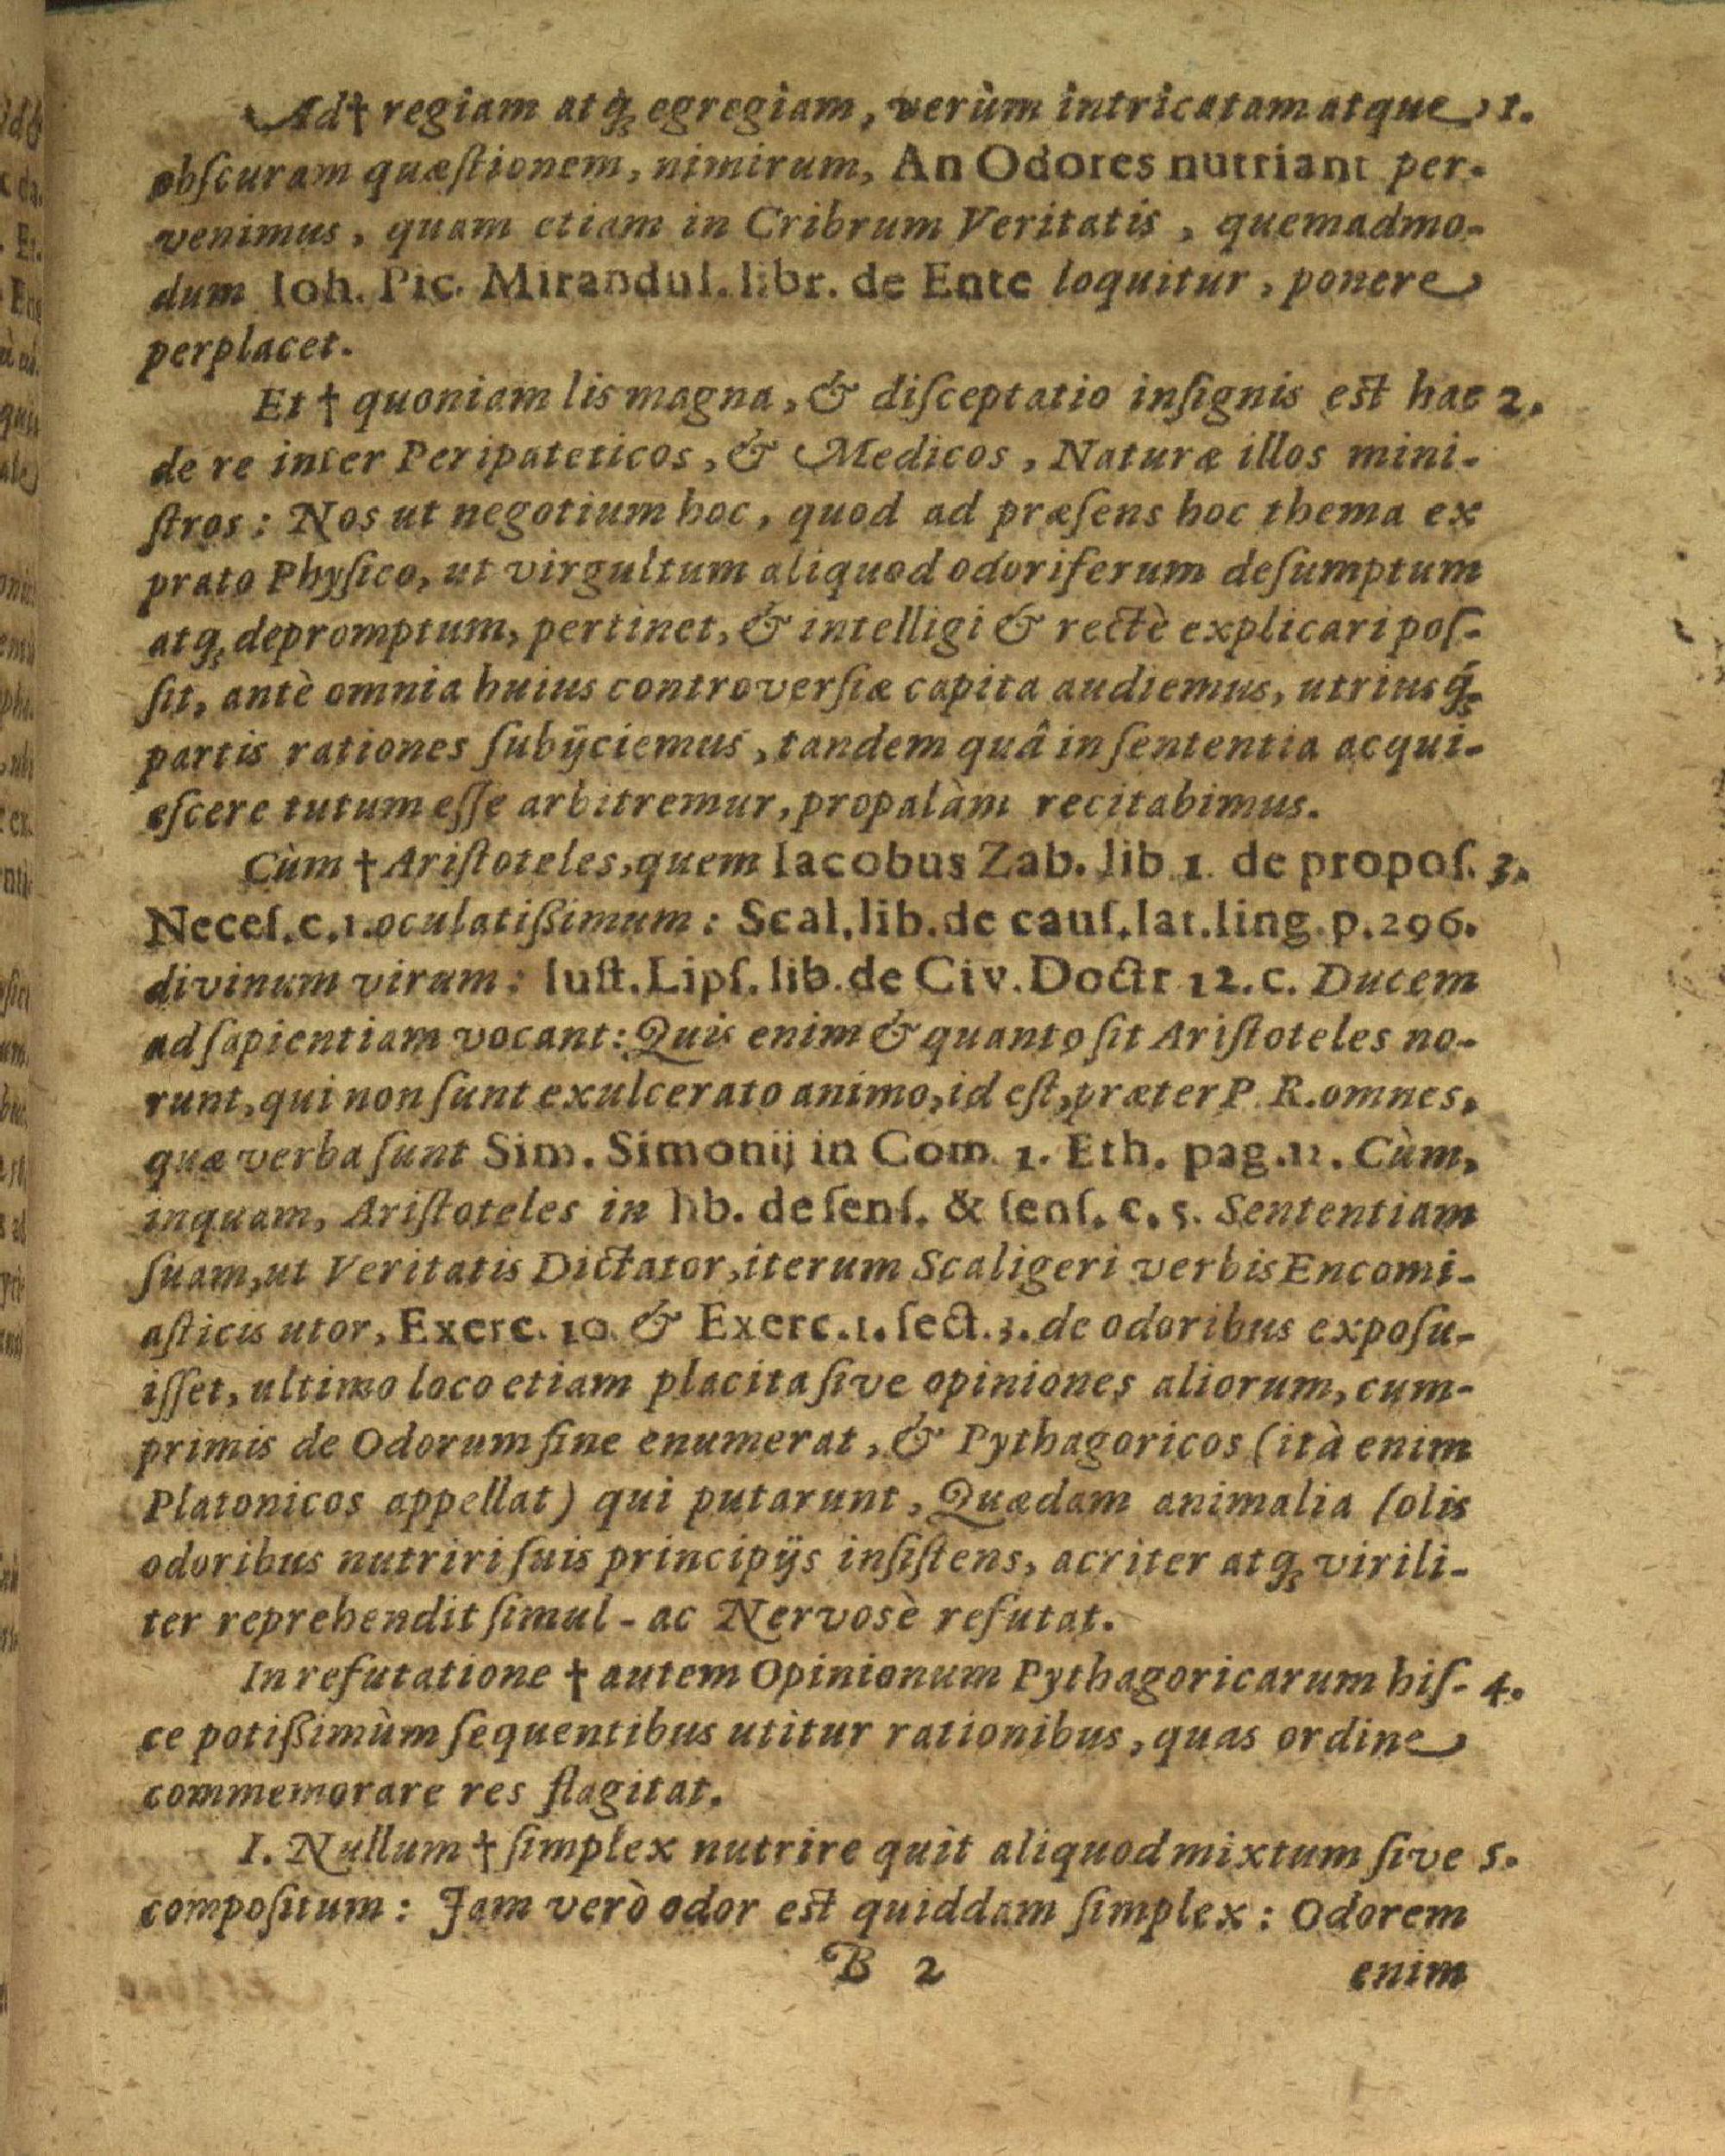 Ad† regiam atq́ꝫ egregiam, verùm intricatam atque 1.
obſcuram quæſtionem, nimirum, An Odores nutriant per-
venimus, quam etiam in Cribrum Veritatis, quemadmo-
dum Ioh. Pic. Mirandul. libr. de Ente loquitur, ponere
perplacet.
Et † quoniam lis magna, & diſceptatio inſignis est hac 2.
de re inter Peripateticos, & Medicos, Naturæ illos mini-
ſtros: Nos ut negotium hoc, quod ad præſens hoc thema ex
prato Phyſico, ut virgultum aliquod odoriferum deſumptum
atqꝫ depromptum, pertinet, & intelligi & rectè explicari poſ-
ſit, antè omnia huius controverſiæ capita audiemus, utriusq́ꝫ
partis rationes ſubijciemus, tandem quâ in ſententia acqui-
eſcere tutum eſſe arbitremur, propalàm recitabimus.
Cùm † Ariſtoteles, quem Iacobus Zab. lib 1. de propoſ. 3.
Neceſ. c. 1. oculatißimum: Scal. lib. de cauſ. lat. ling. p. 296.
divinum virum: Iuſt. Lipſ. lib. de Civ. Doctr 12. c. Ducem
ad ſapientiam vocant: Quis enim & quantꝰ ſit Ariſtoteles no-
runt, qui non ſunt exulcerato animo, id eſt, præter P. R. omnes,
quæ verba ſunt Sim. Simonij in Com. 1. Eth. pag. 11. Cùm,
inquam, Ariſtoteles in lib. de ſenſ. & ſenſ. c. 5. Sententiam
ſuam, ut Veritatis Dictator, iterum Scaligeri verbis Encomi-
aſticis utor, Exerc. 10. & Exerc. 1. ſect. 3. de odoribus expoſu-
iſſet, ultimo loco etiam placita ſive opiniones aliorum, cum-
primis de Odorum fine enumerat, & Pythagoricos (ità enim
Platonicos appellat) qui putarunt, Quædam animalia ſolis
odoribus nutriri ſuis principijs inſiſtens, acriter atqꝫ virili-
ter reprehendit ſimul-ac Nervosè refutat.
In refutatione † autem Opinionum Pythagoricarum hiſ- 4.
ce potißimùm ſequentibus utitur rationibus, quas ordine
commemorare res flagitat.
I. Nullum † ſimplex nutrire quit aliquod mixtum ſive 5.
compoſitum: Jam verò odor est quiddam ſimplex: Odorem
B 2 enim